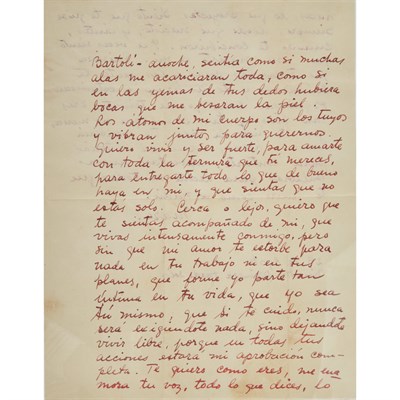 Bartolí- anoche, sentía como si muchas
alas me acariciaran toda, como si
en las yemas de tus dedos hubiera
bocas que me besaran la piel.
Los átomos de mi cuerpo son los tuyos
y vibran juntos para querernos.
Quiero vivir y ser fuerte, para amarte
con toda la ternura que tu mereces,
para entregarte todo lo que de bueno
haya en mi, y que sientas que no
estas solo. Cerca o lejos, quiero que
te sientas acompañado de mi, que
vivas intensamente conmigo, pero
sin que mi amor te estorbe para
nada en tu trabajo ni en tus
planes, que forme yo parte tan
íntima en tu vida, que yo sea
tú mismo, que si te cuido, nunca
será exigiéndote nada, sino dejándote
vivir libre, porque en todas tus
acciones estará mi aprobación com-
pleta. Te quiero como eres, me ena
mora tu voz, todo lo que dices, lo